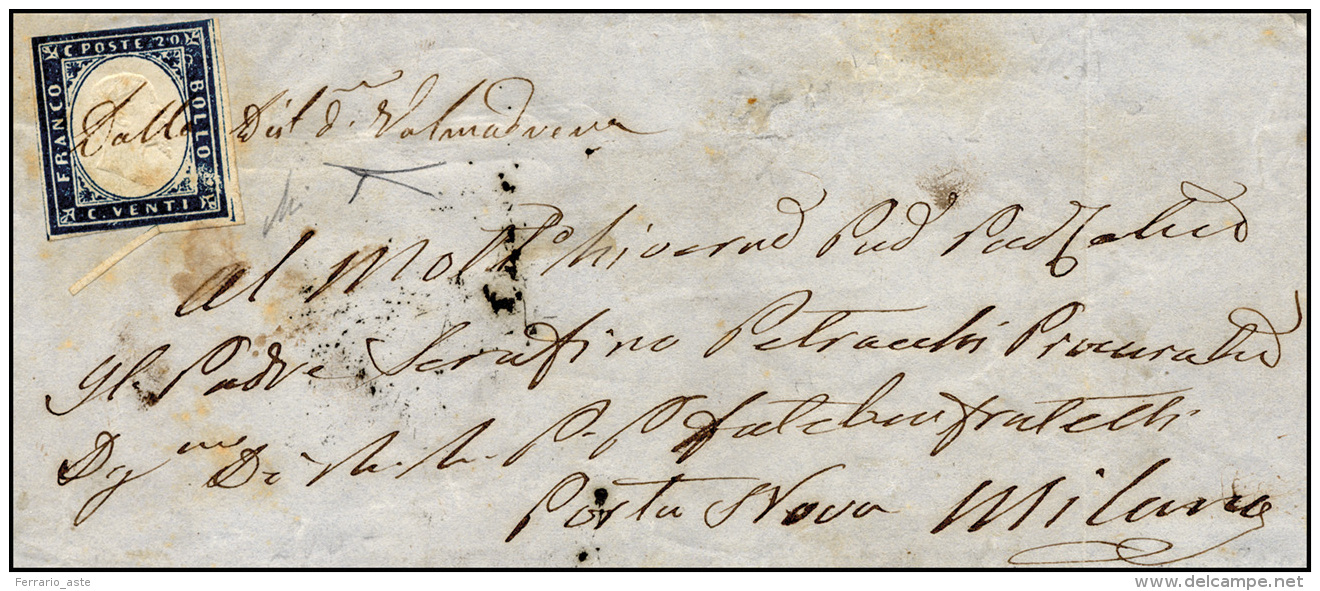 C. POSTE 20
FRANCO
BOLLO
C. VENTI
Dalla Dist.ne di Valmadrera
Al Molto Riverend Pad
Il Padre Serafino Petracchi Procurator
Deg.mo Di P. P. Fatebenfratelli
Porta Nova Milano
Ferrario_aste
delcampe.net